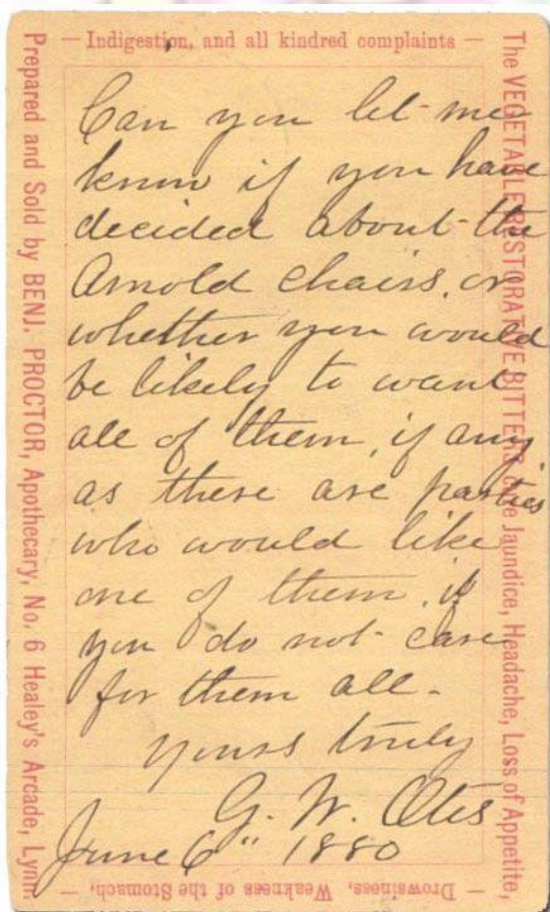 — Indigestion, and all kindred complaints —
The VEGETABLE RESTORATIVE BITTERS cure Jaundice, Headache, Loss of Appetite,
— Drowsiness, Weakness of the Stomach, —
Prepared and Sold by BENJ. PROCTOR, Apothecary, No. 6 Healey's Arcade, Lynn.
Can you let me
know if you have
decided about the
Arnold chairs, or
whether you would
be likely to want
all of them, if any
as there are parties
who would like
one of them, if
you do not care
for them all.
Yours truly
G. W. Otis
June 6" 1880